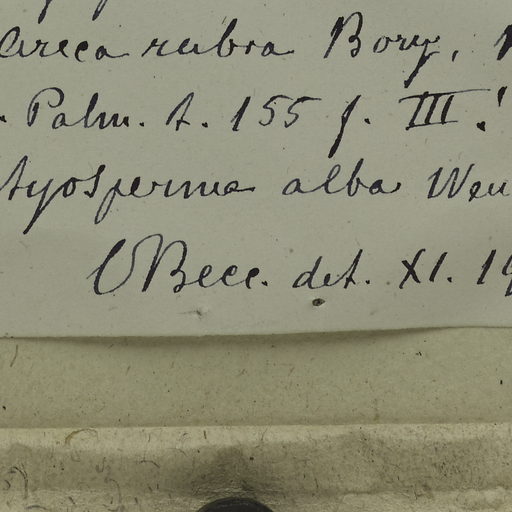 Areca rubra Bory,
Palm. t. 155 f. III.!
tyosperma alba Wen
OBecc. det. XI. 19